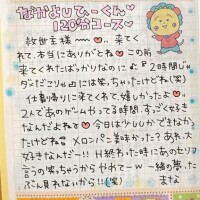 なかよしひーくん♡
120分コース♡
救世主様〜〜♡。。来てく
れて、本当にありがとね♡この前
来てくれたばっかりなのに♪『2時間じゃ
ダンだこりゃ』には笑っちゃったけどね(笑)
仕事帰りに来てくれて、嬉しかったよ♡
2人であのゲームやってる時間、すっごく好き
なんだよね♡今日は少ししかできなか
ったけどね メロンパン美味かった?あれ、大
好きなんだー!!H終わった時にあのセリフ
言うの笑っちゃうからやめてーw一緒の夢、た
ぶん見れないから!!(笑)
まな